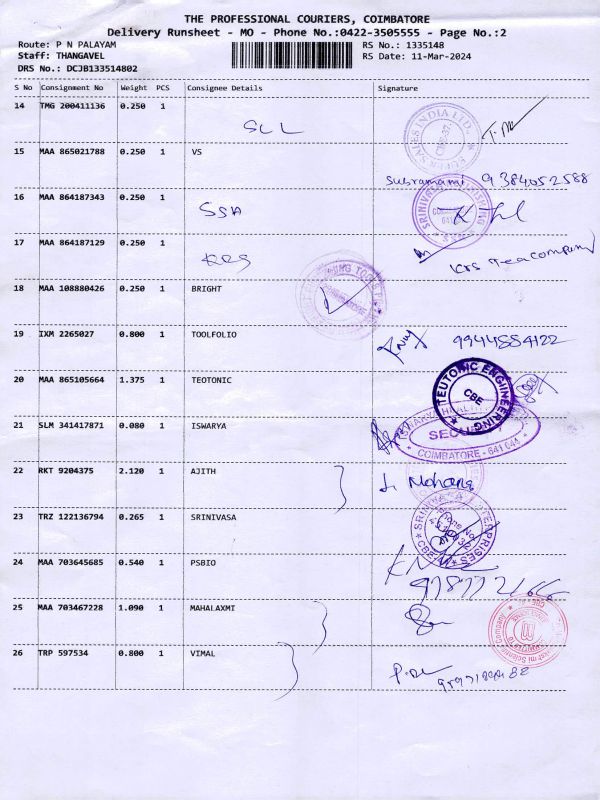 THE PROFESSIONAL COURIERS, COIMBATORE
Delivery Runsheet - MO - Phone No.:0422-3505555 - Page No.:2
Route: P N PALAYAM RS No.: 1335148
Staff: THANGAVEL RS Date: 11-Mar-2024
DRS No.: DCJB133514802
S No Consignment No Weight PCS Consignee Details Signature
14 TMG 200411136 0.250 1
SLL
INDIA LTD.
15 MAA 865021788 0.250 1 VS
Subramani 9384052588
16 MAA 864187343 0.250 1
SSA
17 MAA 864187129 0.250 1
KRS
Krs Tea company
18 MAA 108880426 0.250 1 BRIGHT
19 IXM 2265027 0.800 1 TOOLFOLIO
9944884122
20 MAA 865105664 1.375 1 TEOTONIC
TEUTONIC ENGINEERING
CBE
21 SLM 341417871 0.080 1 ISWARYA
COIMBATORE - 641 044
22 RKT 9204375 2.120 1 AJITH
Mohana
23 TRZ 122136794 0.265 1 SRINIVASA
24 MAA 703645685 0.540 1 PSBIO
25 MAA 703467228 1.090 1 MAHALAXMI
26 TRP 597534 0.800 1 VIMAL